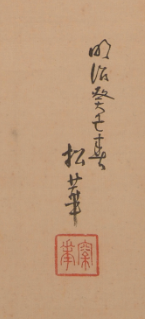 明治癸巳春
松華